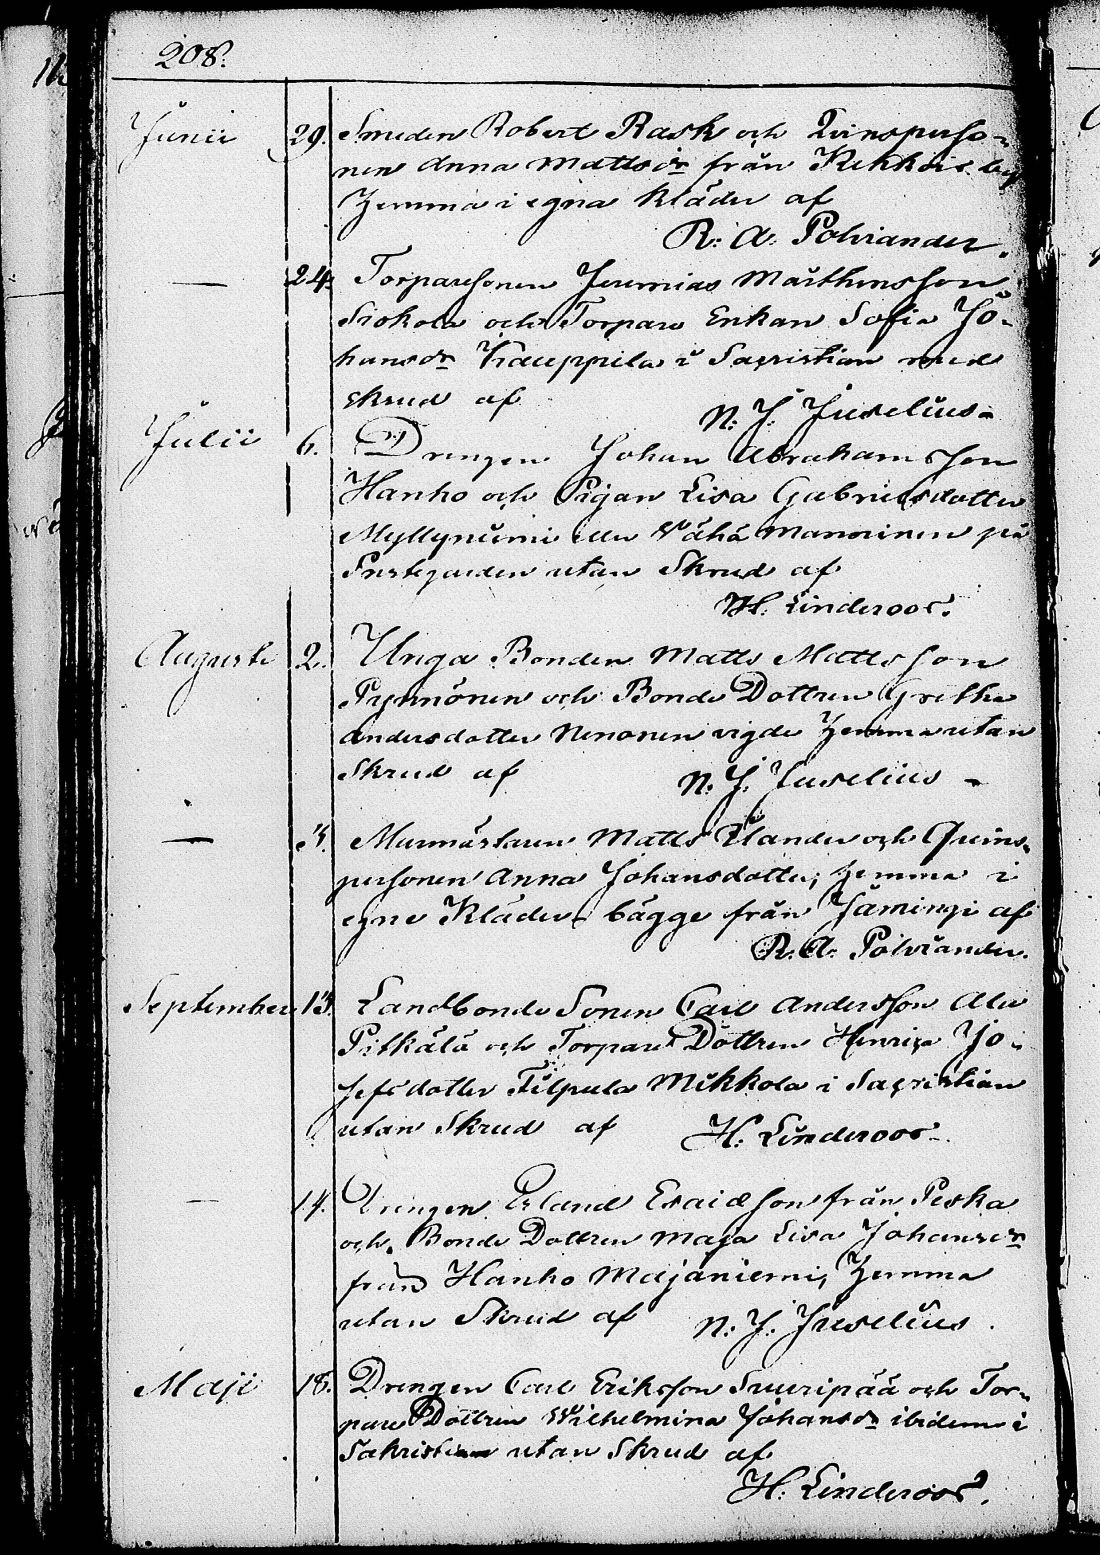 208.
Junii 29. Smeden Robert Rask och Qvinsperso-
nen Anna Mattsdr från Kekkois by
hemma i egna kläder af
R. A. Polviander.
— 24. Torparesonen Jeremias Marthensson
Siokola och Torpare Enkan Sofia Jo-
hansdr Kauppila i Sacristian med
skrud af
N. J. Juselius
Julii 6. Drengen Johan Abrahamsson
Hanho och Pigan Lisa Gabrielsdotter
Myllyniemi eller Vähä Manninen på
Prestegarden utan Skrud af
H. Linderoos.
Augusti 2. Unga Bonden Matts Mattsson
Pynnönen och Bonde Dottren Gretha
Andersdotter Nenonen vigde hemma utan
Skrud af
N. J. Juselius -
— 3. Murmästaren Matts Ulander och Quins-
personen Anna Johansdotter, hemma i
egne Kläder, bägge från Jämingi af
R. A. Polviander.
September 13. Landbonde Sonen Carl Andersson Ala
Pitkälä och Torpare Dottren Henrica Jo-
sefsdotter Filpula Mikkola i Sacristian
utan Skrud af
H. Linderoos
— 14. Drengen Erland Esaiæson från Peska
och Bonde Dottren Maja Lisa Johansdr
från Hanho Majaniemi, hemma
utan Skrud af
N. J. Juselius.
Maji 18. Drengen Carl Eriksson Suuripää och Tor-
pare Dottren Wilhelmina Johansdr ibidem i
Sakristian utan Skrud af
H. Linderoos.